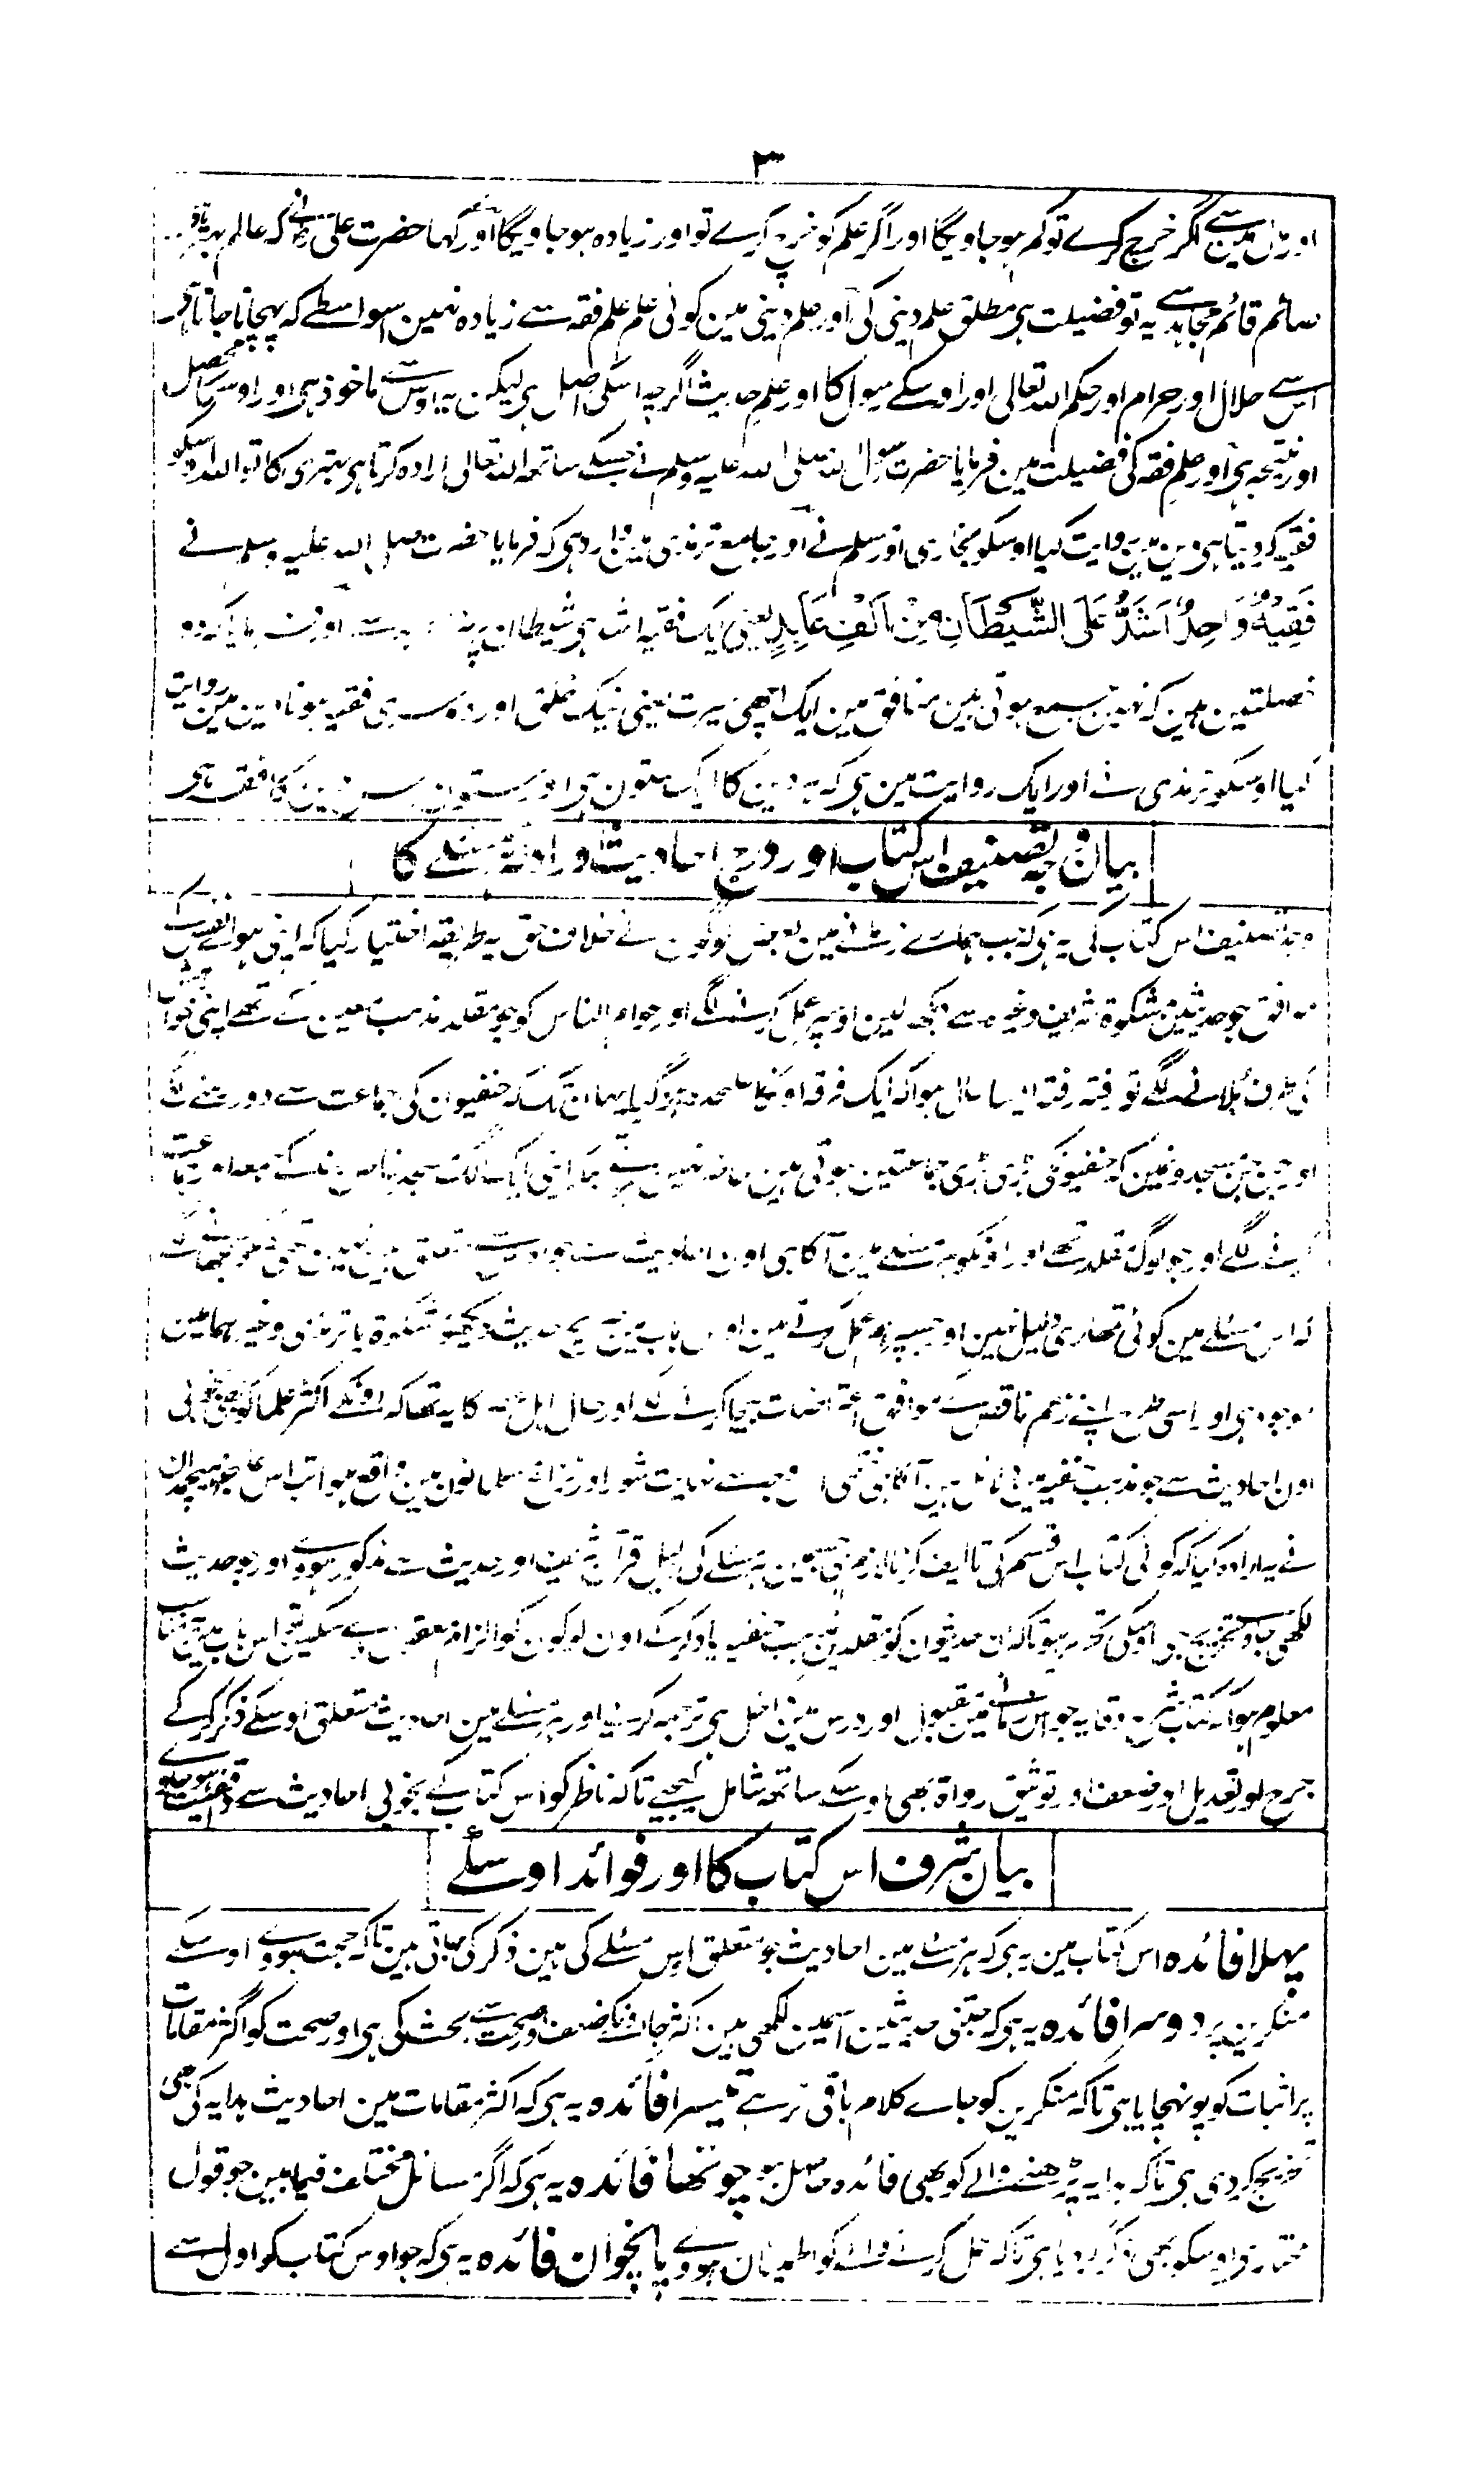 ۳
اور مال مین سے اگر خرچ کرے تو کم ہو جاویگا اور اگر علم کو خرچ کرے تو اور زیادہ ہو جاویگا اور کہا حضرت علی نے کہ عالم بہتر
صائم قائم مجاہد سے یہ تو فضیلت ہی مطلق علم دینی کی اور علم دینی مین کوئی علم علم فقہ سے زیادہ نہین اسواسطے کہ پہچانا جاتا ہی
اس سے حلال اور حرام اور حکم اللہ تعالی اور اوسکے رسول کا اور علم حدیث اگرچہ اسکی اصل ہی لیکن یہ اوس سے ماخوذ ہی اور اوسکا محصل
اور نتیجہ ہی اور علم فقہ کی فضیلت مین فرمایا حضرت رسول اللہ صلی اللہ علیہ وسلم نے جسکے ساتھ اللہ تعالی ارادہ کرتا ہی بہتری کا تو اللہ اوسکو
فقیہ کر دیتا ہی دین مین روایت کیا اوسکو بخاری اور مسلم نے اور جامع ترمذی مین وارد ہی کہ فرمایا حضرت صلی اللہ علیہ وسلم نے
فَقِیْهٌ وَاحِدٌ اَشَدُّ عَلَی الشَّیْطَانِ مِنْ اَلْفِ عَابِدٍ یعنی ایک فقیہ اشد ہی شیطان پر اور فرمایا کہ دو
خصلتین ہین کہ نہین جمع ہوتی ہین منافق مین ایک اچھی سیرت یعنی نیک خلق اور دوسری فقیہ ہونا دین مین روایت
کیا اوسکو ترمذی نے اور ایک روایت مین ہی کہ ہر دین کا ایک ستون ہی اور ستون اس دین کا فقہ ہی
بیان وجہ تصنیف اس کتاب اور درج احادیث اور ادلہ مسئلے کا
وجہ تصنیف اس کتاب کی یہ ہی کہ جب ہمارے زمانے مین بعض لوگون نے خلاف حق یہ طریقہ اختیار کیا کہ اپنی ہوائے نفس کے
موافق جو حدیثین مشکوۃ شریف وغیرہ سے دیکھ لین اوسپر عمل کرنے لگے اور عوام الناس کو جو مقلد مذہب معین کے تھے اپنی خواہش
کی طرف بلانے لگے تو رفتہ رفتہ ایسا حال ہوا کہ ایک فرقہ اونکا علیحدہ ہو گیا یہان تک کہ حنفیون کی جماعت سے دور رہنے لگے
اور جن جن مسجدونمین کہ حنفیونکی بڑی بڑی جماعتین ہوتی ہین حاضر نہین ہوتے بلکہ اپنی ایک الگ مسجد بنا
کرنے لگے اور جو لوگ مقلد تھے اور اونکو ہر مسئلے مین آگاہی اون احادیث سے جو اوس سے متعلق ہین نہین تھی
کہ اس مسئلے مین کوئی تمھاری دلیل نہین اور جسپر ہم عمل کرتے ہین اوس باب مین صحیح حدیث دیکھو مشکوۃ یا ترمذی وغیرہما مین
موجود ہی اور اسی طرح اپنے زعم ناقص کے موافق اعتراضات بیجا کرنے لگے اور حال اہل کا یہ تھا کہ اونکے اکثر علما کو بھی
اون احادیث سے جو مذہب حنفیہ کے دلائل ہین آگاہی نہ تھی اس وجہ سے نہایت شور اور نزاع مسلمانون مین واقع ہوا تب اس عاجز ہیچمدان
نے یہ ارادہ کیا کہ کوئی کتاب اس قسم کی تالیف کرنا لازم ہی جسمین ہر مسئلے کی دلیل قرآن شریف اور حدیث سے مذکور ہووے اور جو حدیث
لکھی جاوے تخریج اوسکی تحریر ہو تاکہ ان حدیثون کو مقلدین مذہب حنفیہ یاد کرکے اون لوگون کو الزام معقول دے سکین اس باب مین مناسب
معلوم ہوا کہ کتاب شرح وقایہ جو اس زمانے مین مقبول اور درس مین داخل ہی ترجمہ کرنے اور ہر مسئلے مین احادیث متعلق اوسکے ذکر کرکے
جرح اور تعدیل اور ضعف اور توثیق رواۃ بھی اوسکے ساتھ شامل کیجیے تاکہ ناظر کو اس کتاب کے بخوبی احادیث سے واقفیت ہو جاوے
بیان شرف اس کتاب کا اور فوائد اوسکے
پہلا فائدہ اس کتاب مین یہ ہی کہ ہر مسئلے مین احادیث جو متعلق اس مسئلے کی ہین ذکر کی جاتی ہین تاکہ حجت ہووے اوسکے
منکرین پر دوسرا فائدہ یہ ہی کہ جتنی حدیثین اسمین لکھی ہین اکثر جا اونکا ضعف اور صحت سے بحث کی ہی اور صحت کو اکثر مقامات
پر اثبات کو پونہچایا ہی تاکہ منکرین کو جاے کلام باقی نرہے تیسرا فائدہ یہ ہی کہ اکثر مقامات مین احادیث ہدایہ کی بھی
تخریج کر دی ہی تاکہ ہدایہ پڑھنے والے کو بھی فائدہ حاصل ہو چوتھا فائدہ یہ ہی کہ اکثر مسائل مختلف فیہا مین جو قول
مختار ہی اوسکو بھی ذکر کر دیا ہی تاکہ عمل کرنے والے کو اطمینان ہووے پانچوان فائدہ یہ ہی کہ جو اوس کتاب کو اول سے